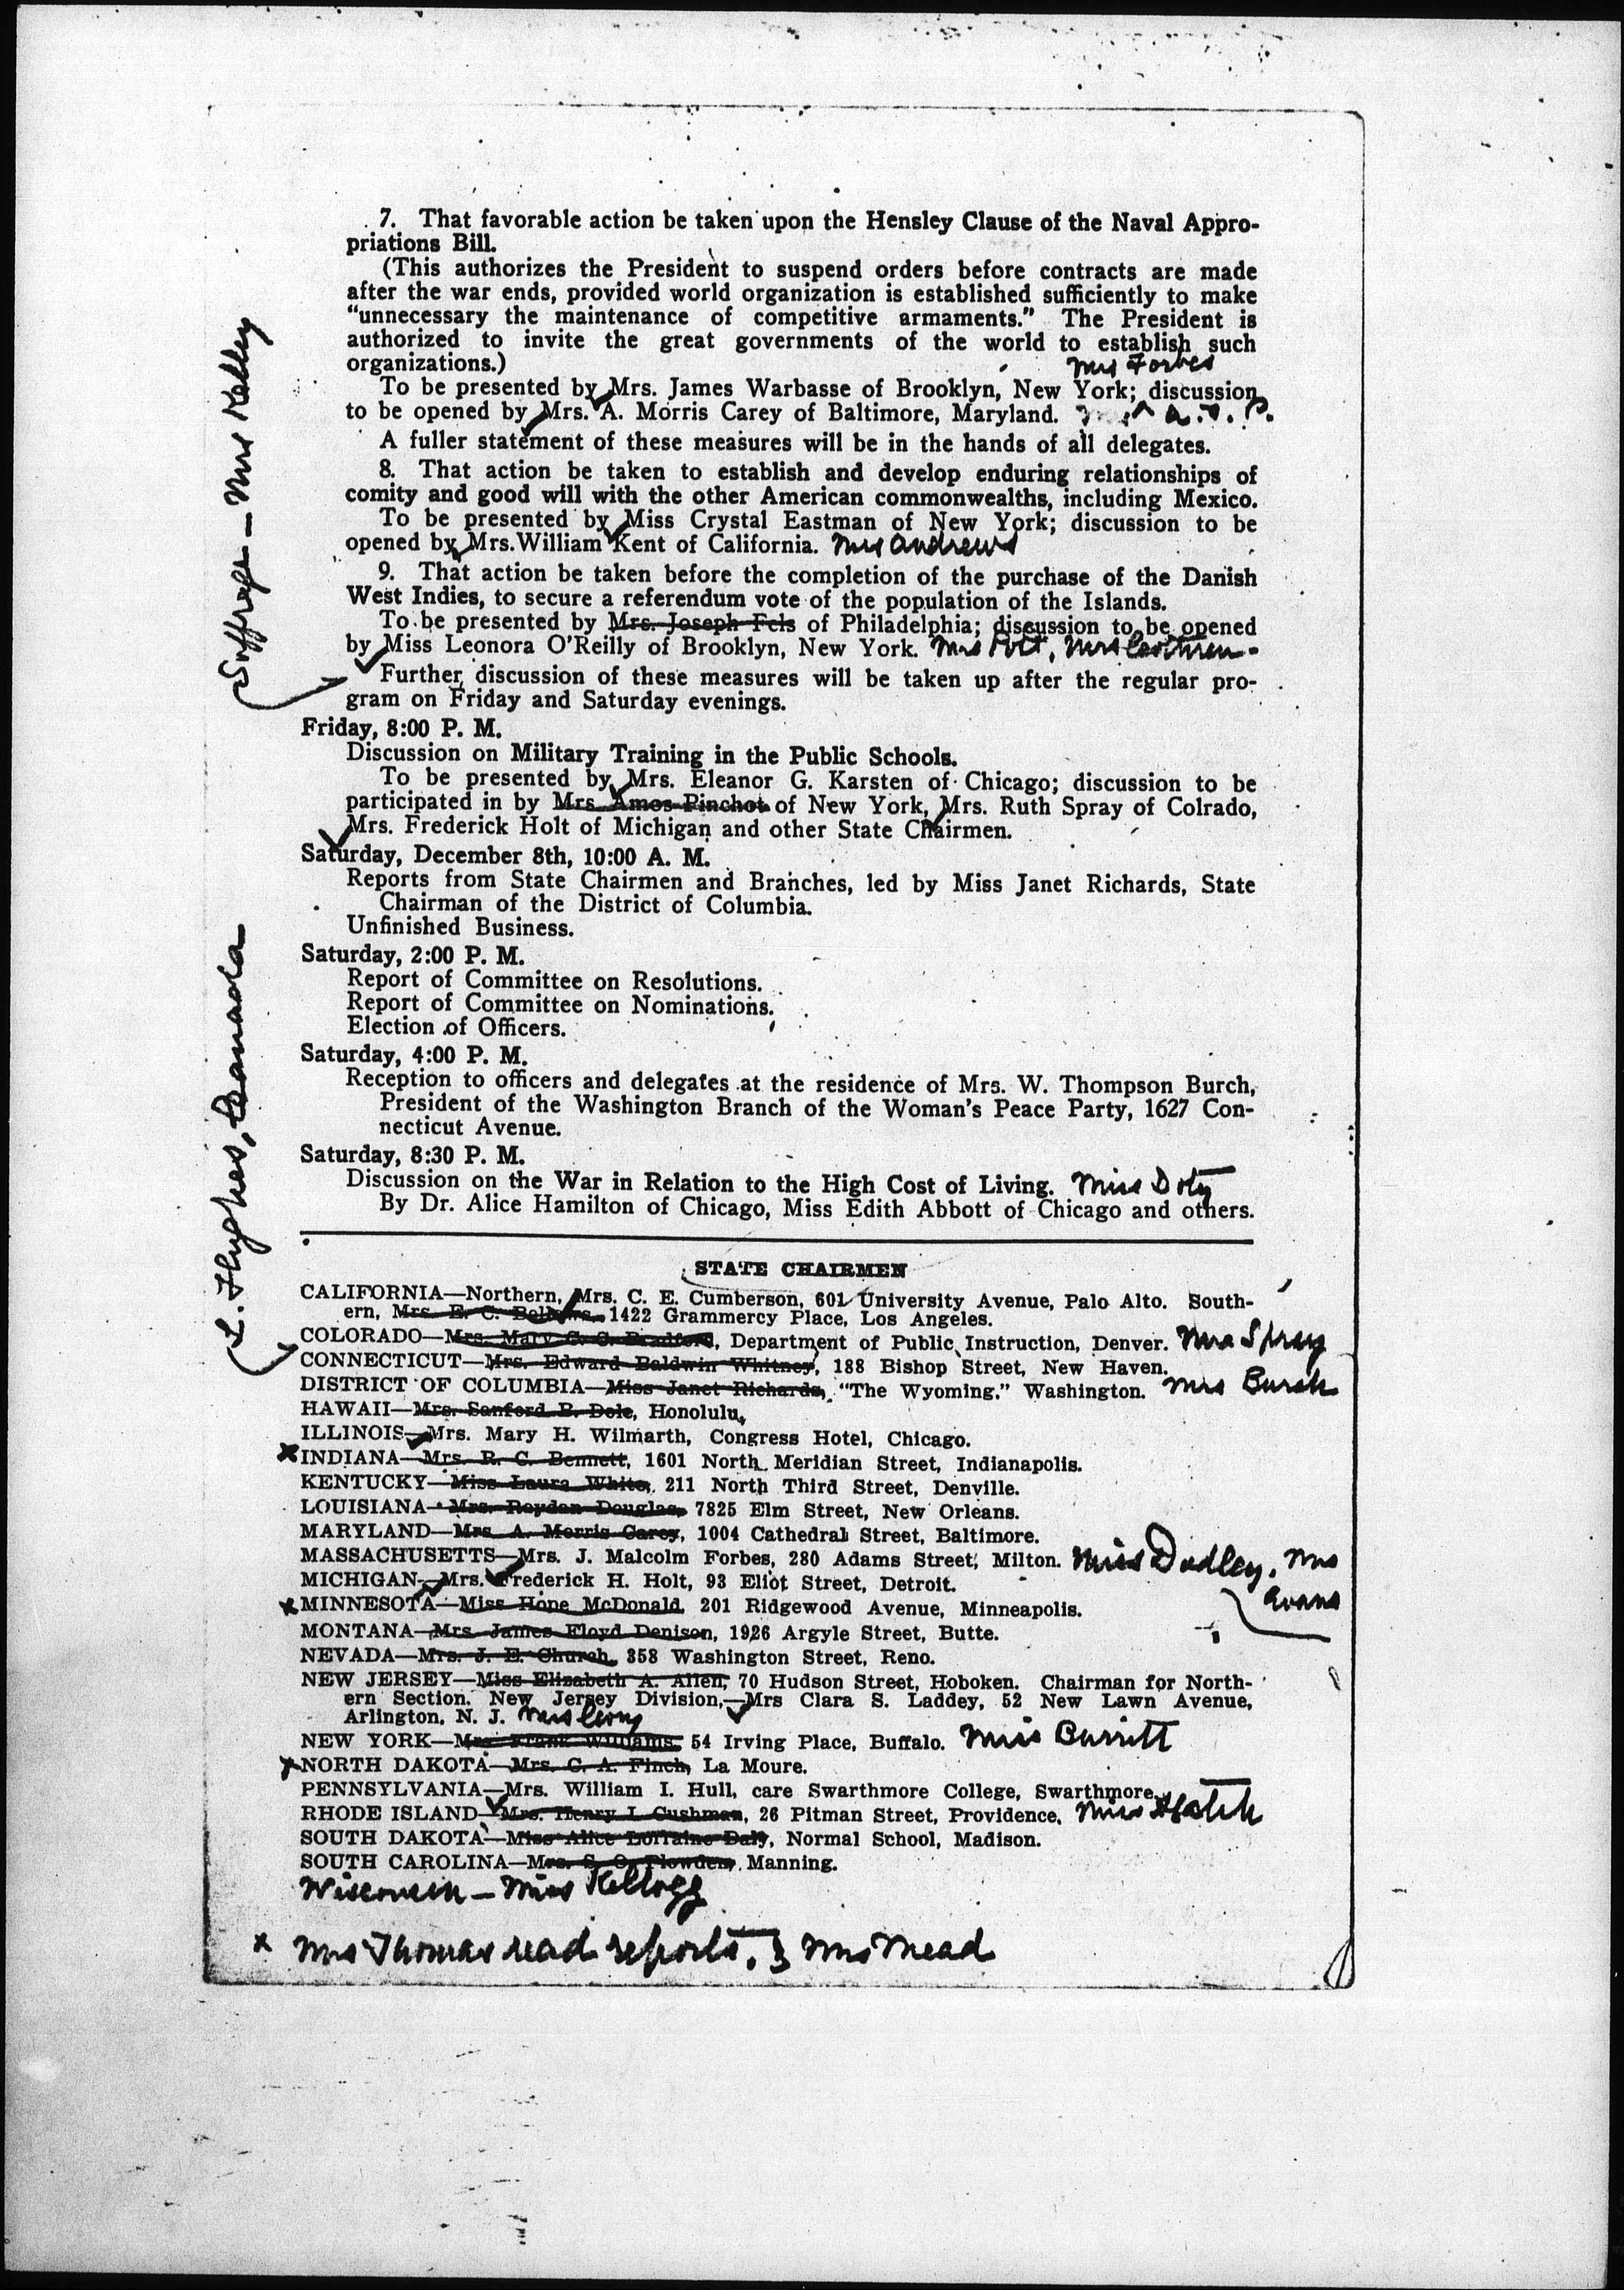 7. That favorable action be taken upon the Hensley Clause of the Naval Appro-
priations Bill.
(This authorizes the President to suspend orders before contracts are made
after the war ends, provided world organization is established sufficiently to make
"unnecessary the maintenance of competitive armaments." The President is
authorized to invite the great governments of the world to establish such
organizations.)
Mrs Forbes
To be presented by Mrs. James Warbasse of Brooklyn, New York; discussion
to be opened by Mrs. A. Morris Carey of Baltimore, Maryland.
A fuller statement of these measures will be in the hands of all delegates.
8. That action be taken to establish and develop enduring relationships of
comity and good will with the other American commonwealths, including Mexico.
To be presented by Miss Crystal Eastman of New York; discussion to be
opened by Mrs.William Kent of California. Mrs Andrews
9. That action be taken before the completion of the purchase of the Danish
West Indies, to secure a referendum vote of the population of the Islands.
To be presented by Mrs. Joseph Fels of Philadelphia; discussion to be opened
by Miss Leonora O'Reilly of Brooklyn, New York. Mrs
Further discussion of these measures will be taken up after the regular pro-
gram on Friday and Saturday evenings.
Suffrage - Mrs Kelley
Friday, 8:00 P. M.
Discussion on Military Training in the Public Schools.
To be presented by Mrs. Eleanor G. Karsten of Chicago; discussion to be
participated in by Mrs. Amos Pinchot of New York, Mrs. Ruth Spray of Colrado,
Mrs. Frederick Holt of Michigan and other State Chairmen.
Saturday, December 8th, 10:00 A. M.
Reports from State Chairmen and Branches, led by Miss Janet Richards, State
Chairman of the District of Columbia.
Unfinished Business.
Saturday, 2:00 P. M.
Report of Committee on Resolutions.
Report of Committee on Nominations.
Election of Officers.
Saturday, 4:00 P. M.
Reception to officers and delegates at the residence of Mrs. W. Thompson Burch,
President of the Washington Branch of the Woman's Peace Party, 1627 Con-
necticut Avenue.
Saturday, 8:30 P. M.
Discussion on the War in Relation to the High Cost of Living. Miss Doty
By Dr. Alice Hamilton of Chicago, Miss Edith Abbott of Chicago and others.
L. Hughes, Canada
STATE CHAIRMEN
CALIFORNIA—Northern, Mrs. C. E. Cumberson, 601 University Avenue, Palo Alto. South-
ern, Mrs. E. C. Bellows, 1422 Grammercy Place, Los Angeles.
COLORADO—Mrs. Mary C. C. Bradford, Department of Public Instruction, Denver. Mrs Spray
CONNECTICUT—Mrs. Edward Baldwin Whitney, 188 Bishop Street, New Haven.
DISTRICT OF COLUMBIA—Miss Janet Richards, "The Wyoming," Washington. Mrs Burch
HAWAII—Mrs. Sanford B. Dole, Honolulu.
ILLINOIS—Mrs. Mary H. Wilmarth, Congress Hotel, Chicago.
x INDIANA—Mrs. R. C. Bennett, 1601 North Meridian Street, Indianapolis.
KENTUCKY—Miss Laura White, 211 North Third Street, Denville.
LOUISIANA—Mrs. Roydon Douglas, 7825 Elm Street, New Orleans.
MARYLAND—Mrs. A. Morris Carey, 1004 Cathedral Street, Baltimore.
MASSACHUSETTS—Mrs. J. Malcolm Forbes, 280 Adams Street, Milton. Miss Dudley, Mrs
Evans
MICHIGAN—Mrs. Frederick H. Holt, 93 Eliot Street, Detroit.
x MINNESOTA—Miss Hope McDonald, 201 Ridgewood Avenue, Minneapolis.
MONTANA—Mrs. James Floyd Denison, 1926 Argyle Street, Butte.
NEVADA—Mrs. J. E. Church, 358 Washington Street, Reno.
NEW JERSEY—Miss Elizabeth A. Allen, 70 Hudson Street, Hoboken. Chairman for North-
ern Section. New Jersey Division,—Mrs Clara S. Laddey, 52 New Lawn Avenue,
Arlington, N. J. Mrs
NEW YORK—Mrs. Frank Williams, 54 Irving Place, Buffalo. Miss Burritt
x NORTH DAKOTA—Mrs. C. A. Finch, La Moure.
PENNSYLVANIA—Mrs. William I. Hull, care Swarthmore College, Swarthmore.
RHODE ISLAND—Mrs. Henry I. Cushman, 26 Pitman Street, Providence.
SOUTH DAKOTA—Miss Alice Lorraine Daly, Normal School, Madison.
SOUTH CAROLINA—Mrs. S. O. Plowden, Manning.
Wisconsin - Miss Kellogg
x Mrs Thomas read reports. & Mrs Mead